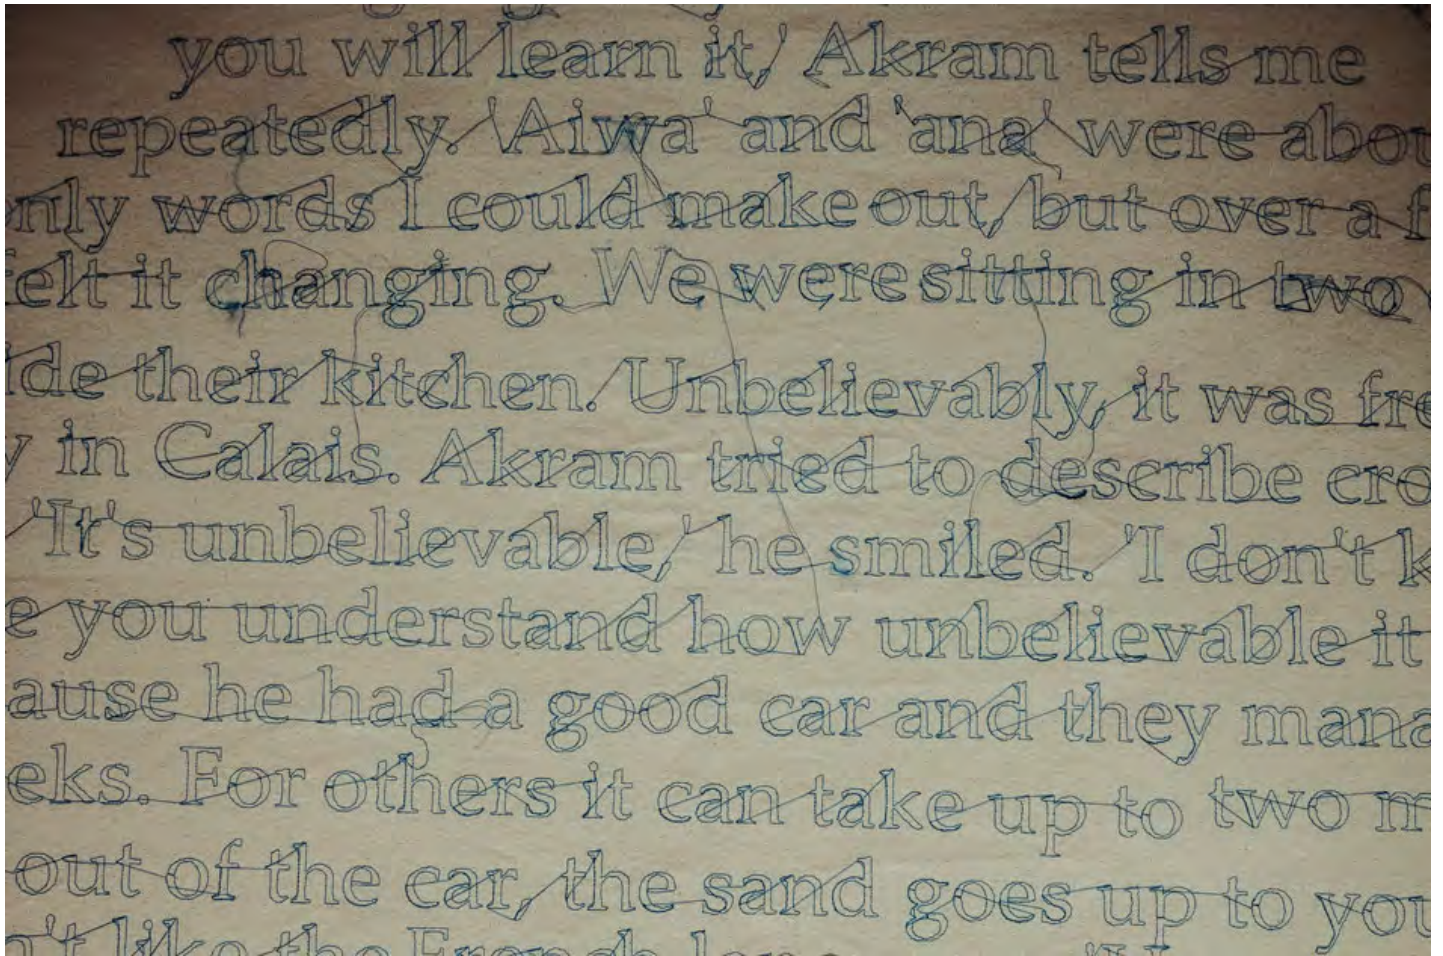 you will learn it,' Akram tells me
repeatedly. 'Aiwa' and 'ana' were abou
nly words I could make out, but over a f
felt it changing. We were sitting in two
ide their kitchen. Unbelievably, it was fre
y in Calais. Akram tried to describe cro
'It's unbelievable,' he smiled. 'I don't k
e you understand how unbelievable it
ause he had a good car and they mana
eks. For others it can take up to two m
out of the car, the sand goes up to you
n't like the French